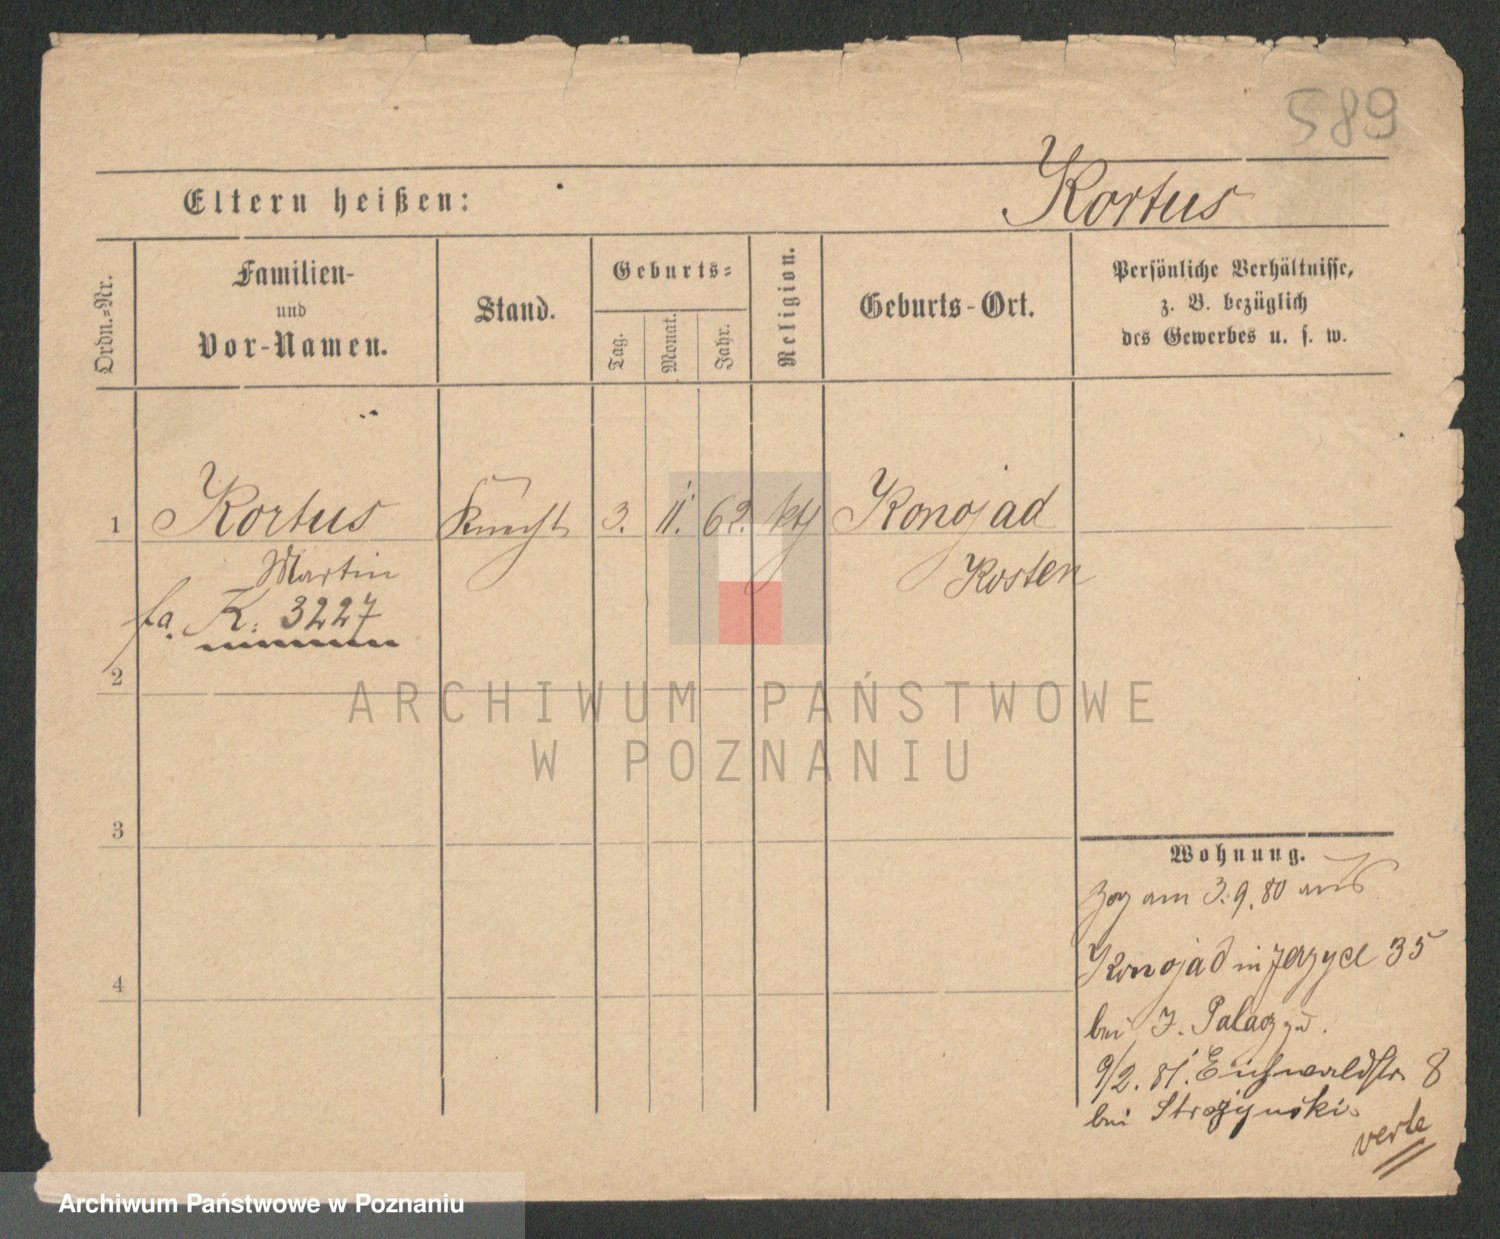 589
Kortus
Eltern heißen:
Ordn.-Nr.
Familien-
und
Vor-Namen.
Stand.
Geburts-
Tag.
Monat.
Jahr.
Religion.
Geburts-Ort.
Persönliche Verhältnisse,
z. B. bezüglich
des Gewerbes u. s. w.
1
Kortus
Knecht
3.
11.
62.
kth
Konojad
Martin
Kosten
fa. K. 3227
2
3
4
ARCHIWUM PAŃSTWOWE
W POZNANIU
Wohnung.
Zog am 3.9.80 aus
Konojad in Jerzyce 35
bei J.
9/2. 81. Eichwaldstr. 8
bei Strożynski.
verte
Archiwum Państwowe w Poznaniu